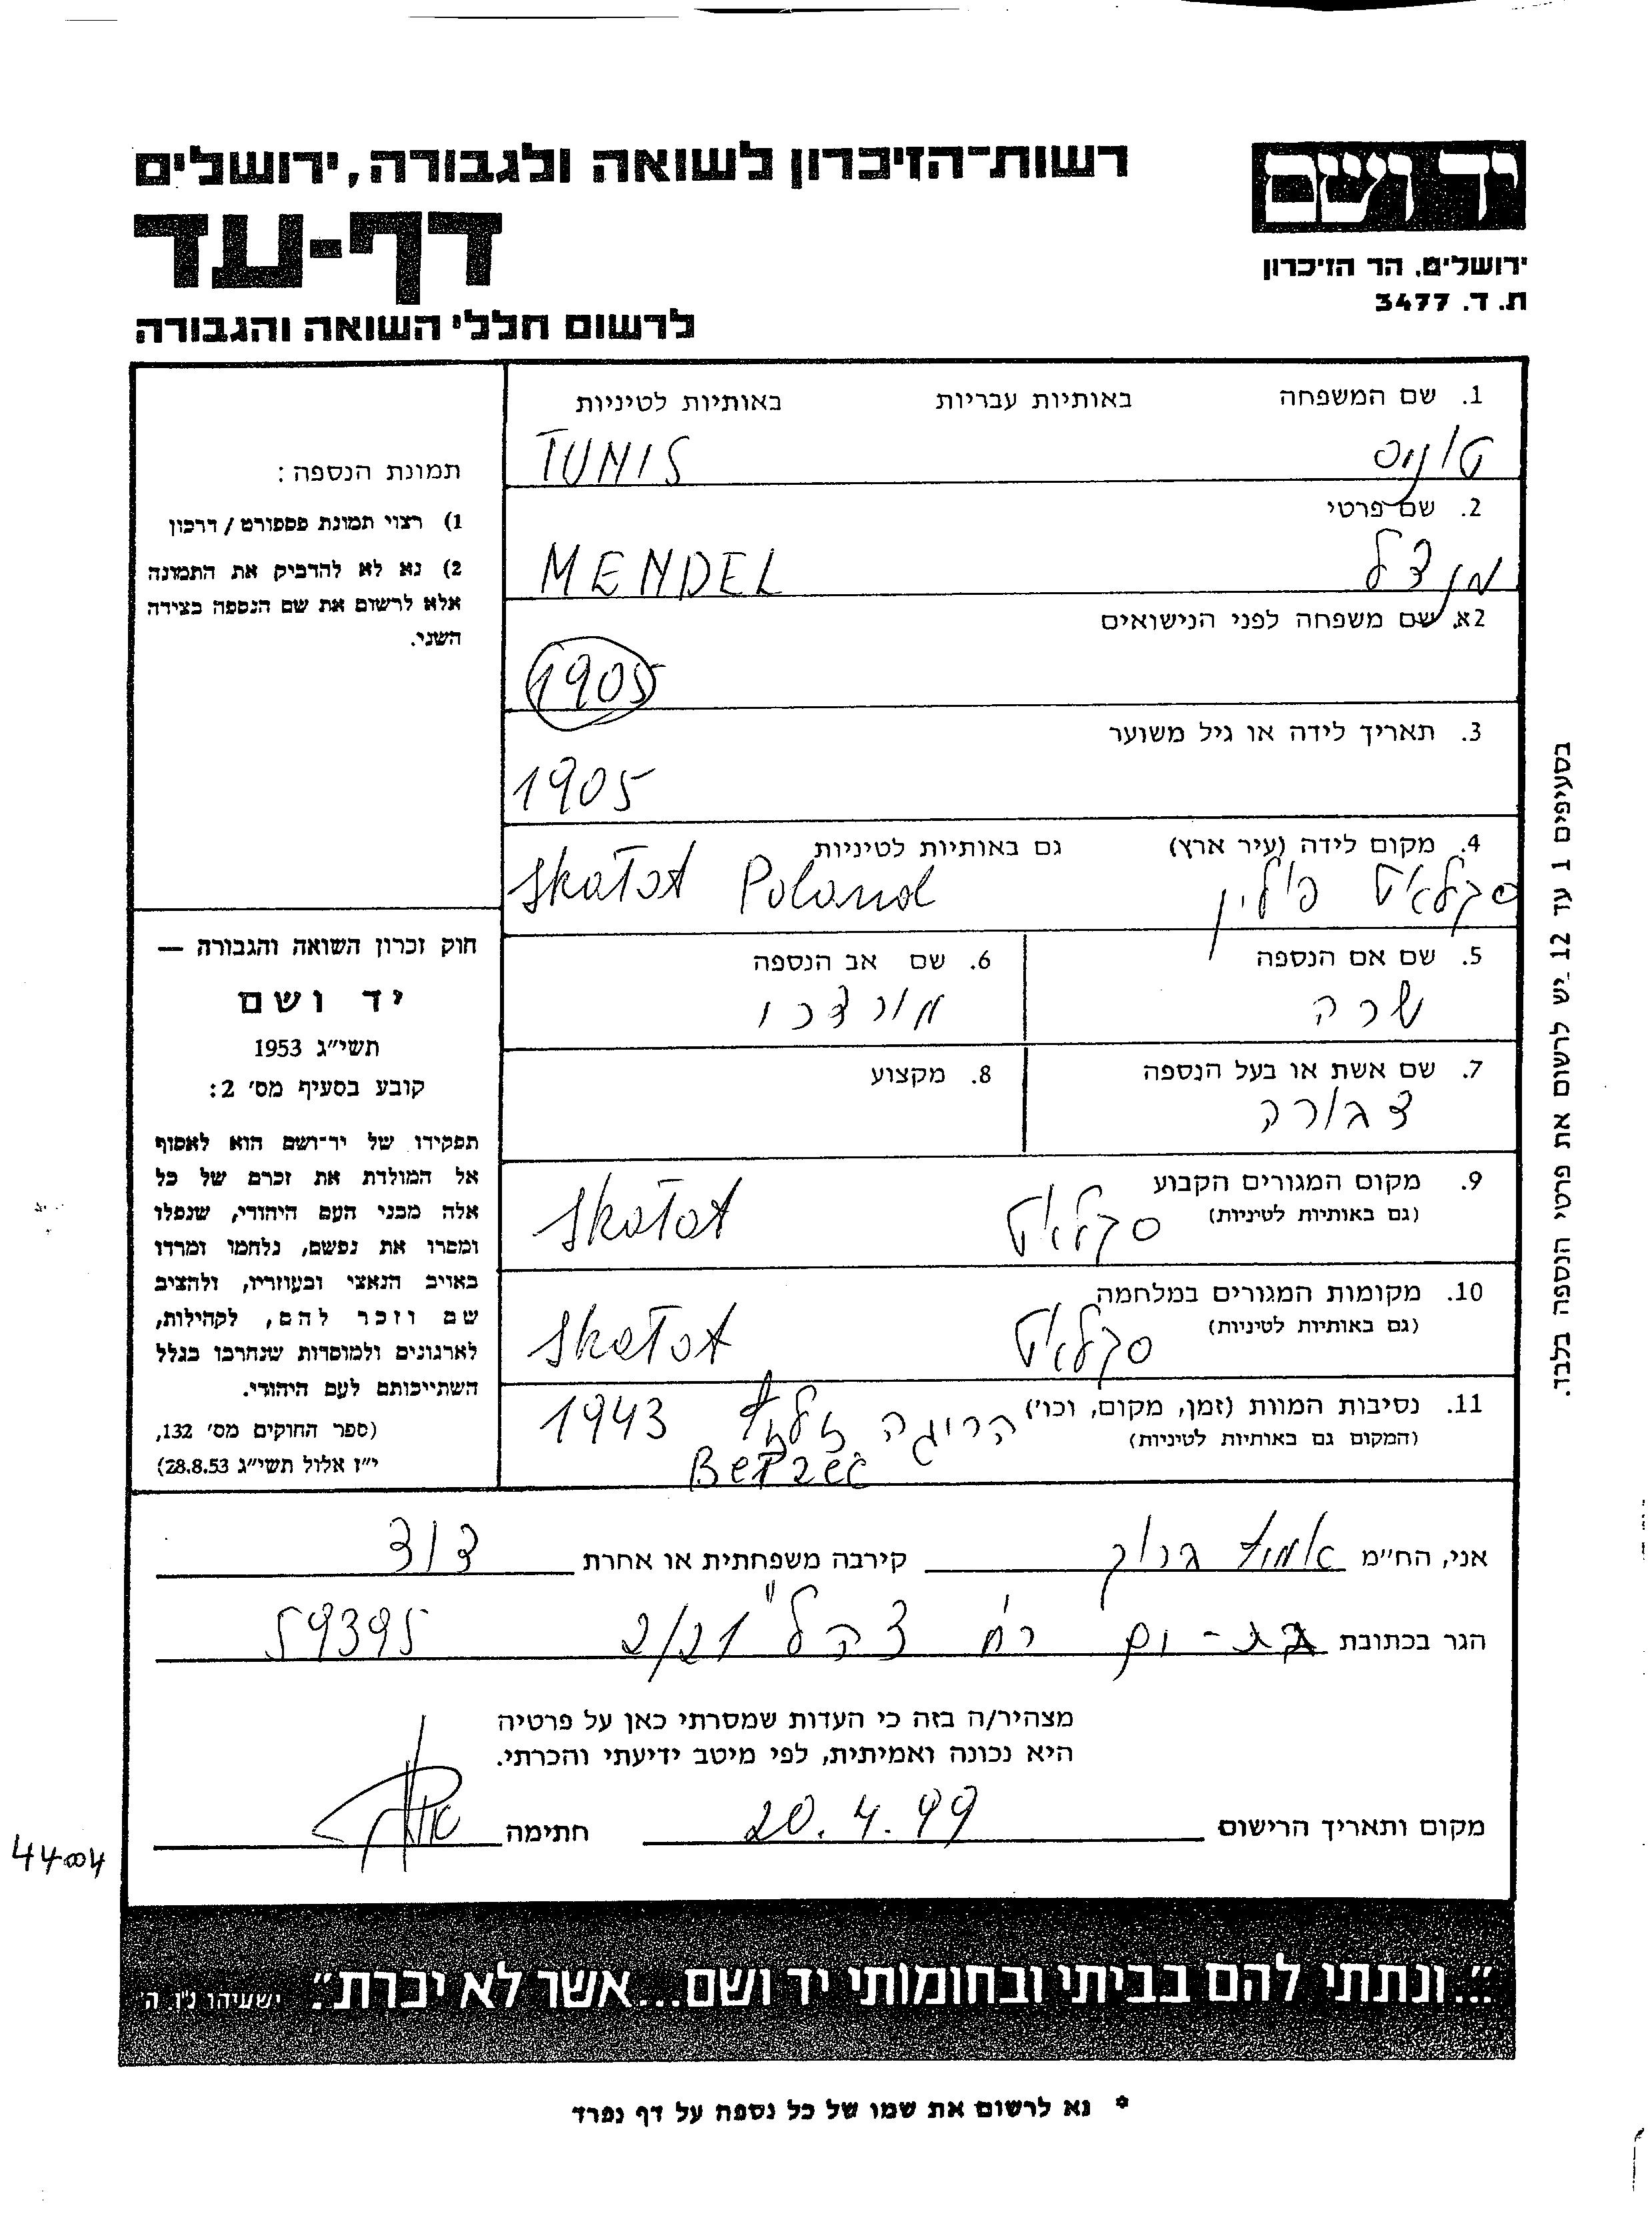 יד ושם
ירושלים, הר הזיכרון
ת. ד. 3477
רשות־הזיכרון לשואה ולגבורה, ירושלים
דף-עד
לרשום חללי השואה והגבורה
1. שם המשפחה באותיות עבריות באותיות לטיניות
טוניס TUNIS
2. שם פרטי
מנדל MENDEL
2א. שם משפחה לפני הנישואים
1905
3. תאריך לידה או גיל משוער
1905
4. מקום לידה (עיר ארץ) גם באותיות לטיניות
סקלאט פולין Skałat Poland
5. שם אם הנספה
שרה
6. שם אב הנספה
מורדכו
7. שם אשת או בעל הנספה
דבורה
8. מקצוע
9. מקום המגורים הקבוע
(גם באותיות לטיניות)
סקלאט Skałat
10. מקומות המגורים במלחמה
(גם באותיות לטיניות)
סקלאט Skałat
11. נסיבות המוות (זמן, מקום, וכו')
(המקום גם באותיות לטיניות)
1943
Bełzec
תמונת הנספה:
1) רצוי תמונת פספורט / דרכון
2) נא לא להדביק את התמונה
אלא לרשום את שם הנספה בצידה
השני.
חוק זכרון השואה והגבורה —
יד ושם
תשי״ג 1953
קובע בסעיף מס׳ 2:
תפקידו של יד־ושם הוא לאסוף
אל המולדת את זכרם של כל
אלה מבני העם היהודי, שנפלו
ומסרו את נפשם, נלחמו ומרדו
באויב הנאצי ובעוזריו, ולהציב
שם וזכר להם, לקהילות,
לארגונים ולמוסדות שנחרבו בגלל
השתייכותם לעם היהודי.
(ספר החוקים מס׳ 132,
י״ז אלול תשי״ג 28.8.53)
בסעיפים 1 עד 12 יש לרשום את פרטי הנספה בלבד.
אני, הח״מ ברוך קירבה משפחתית או אחרת דוד
הגר בכתובת בת-ים רח' דקל 2/21 59395
מצהיר/ה בזה כי העדות שמסרתי כאן על פרטיה
היא נכונה ואמיתית, לפי מיטב ידיעתי והכרתי.
מקום ותאריך הרישום 20.4.99 חתימה
״...ונתתי להם בביתי ובחומותי יד ושם...אשר לא יכרת.״ ישעיהו נ״ו ה׳
* נא לרשום את שמו של כל נספה על דף נפרד